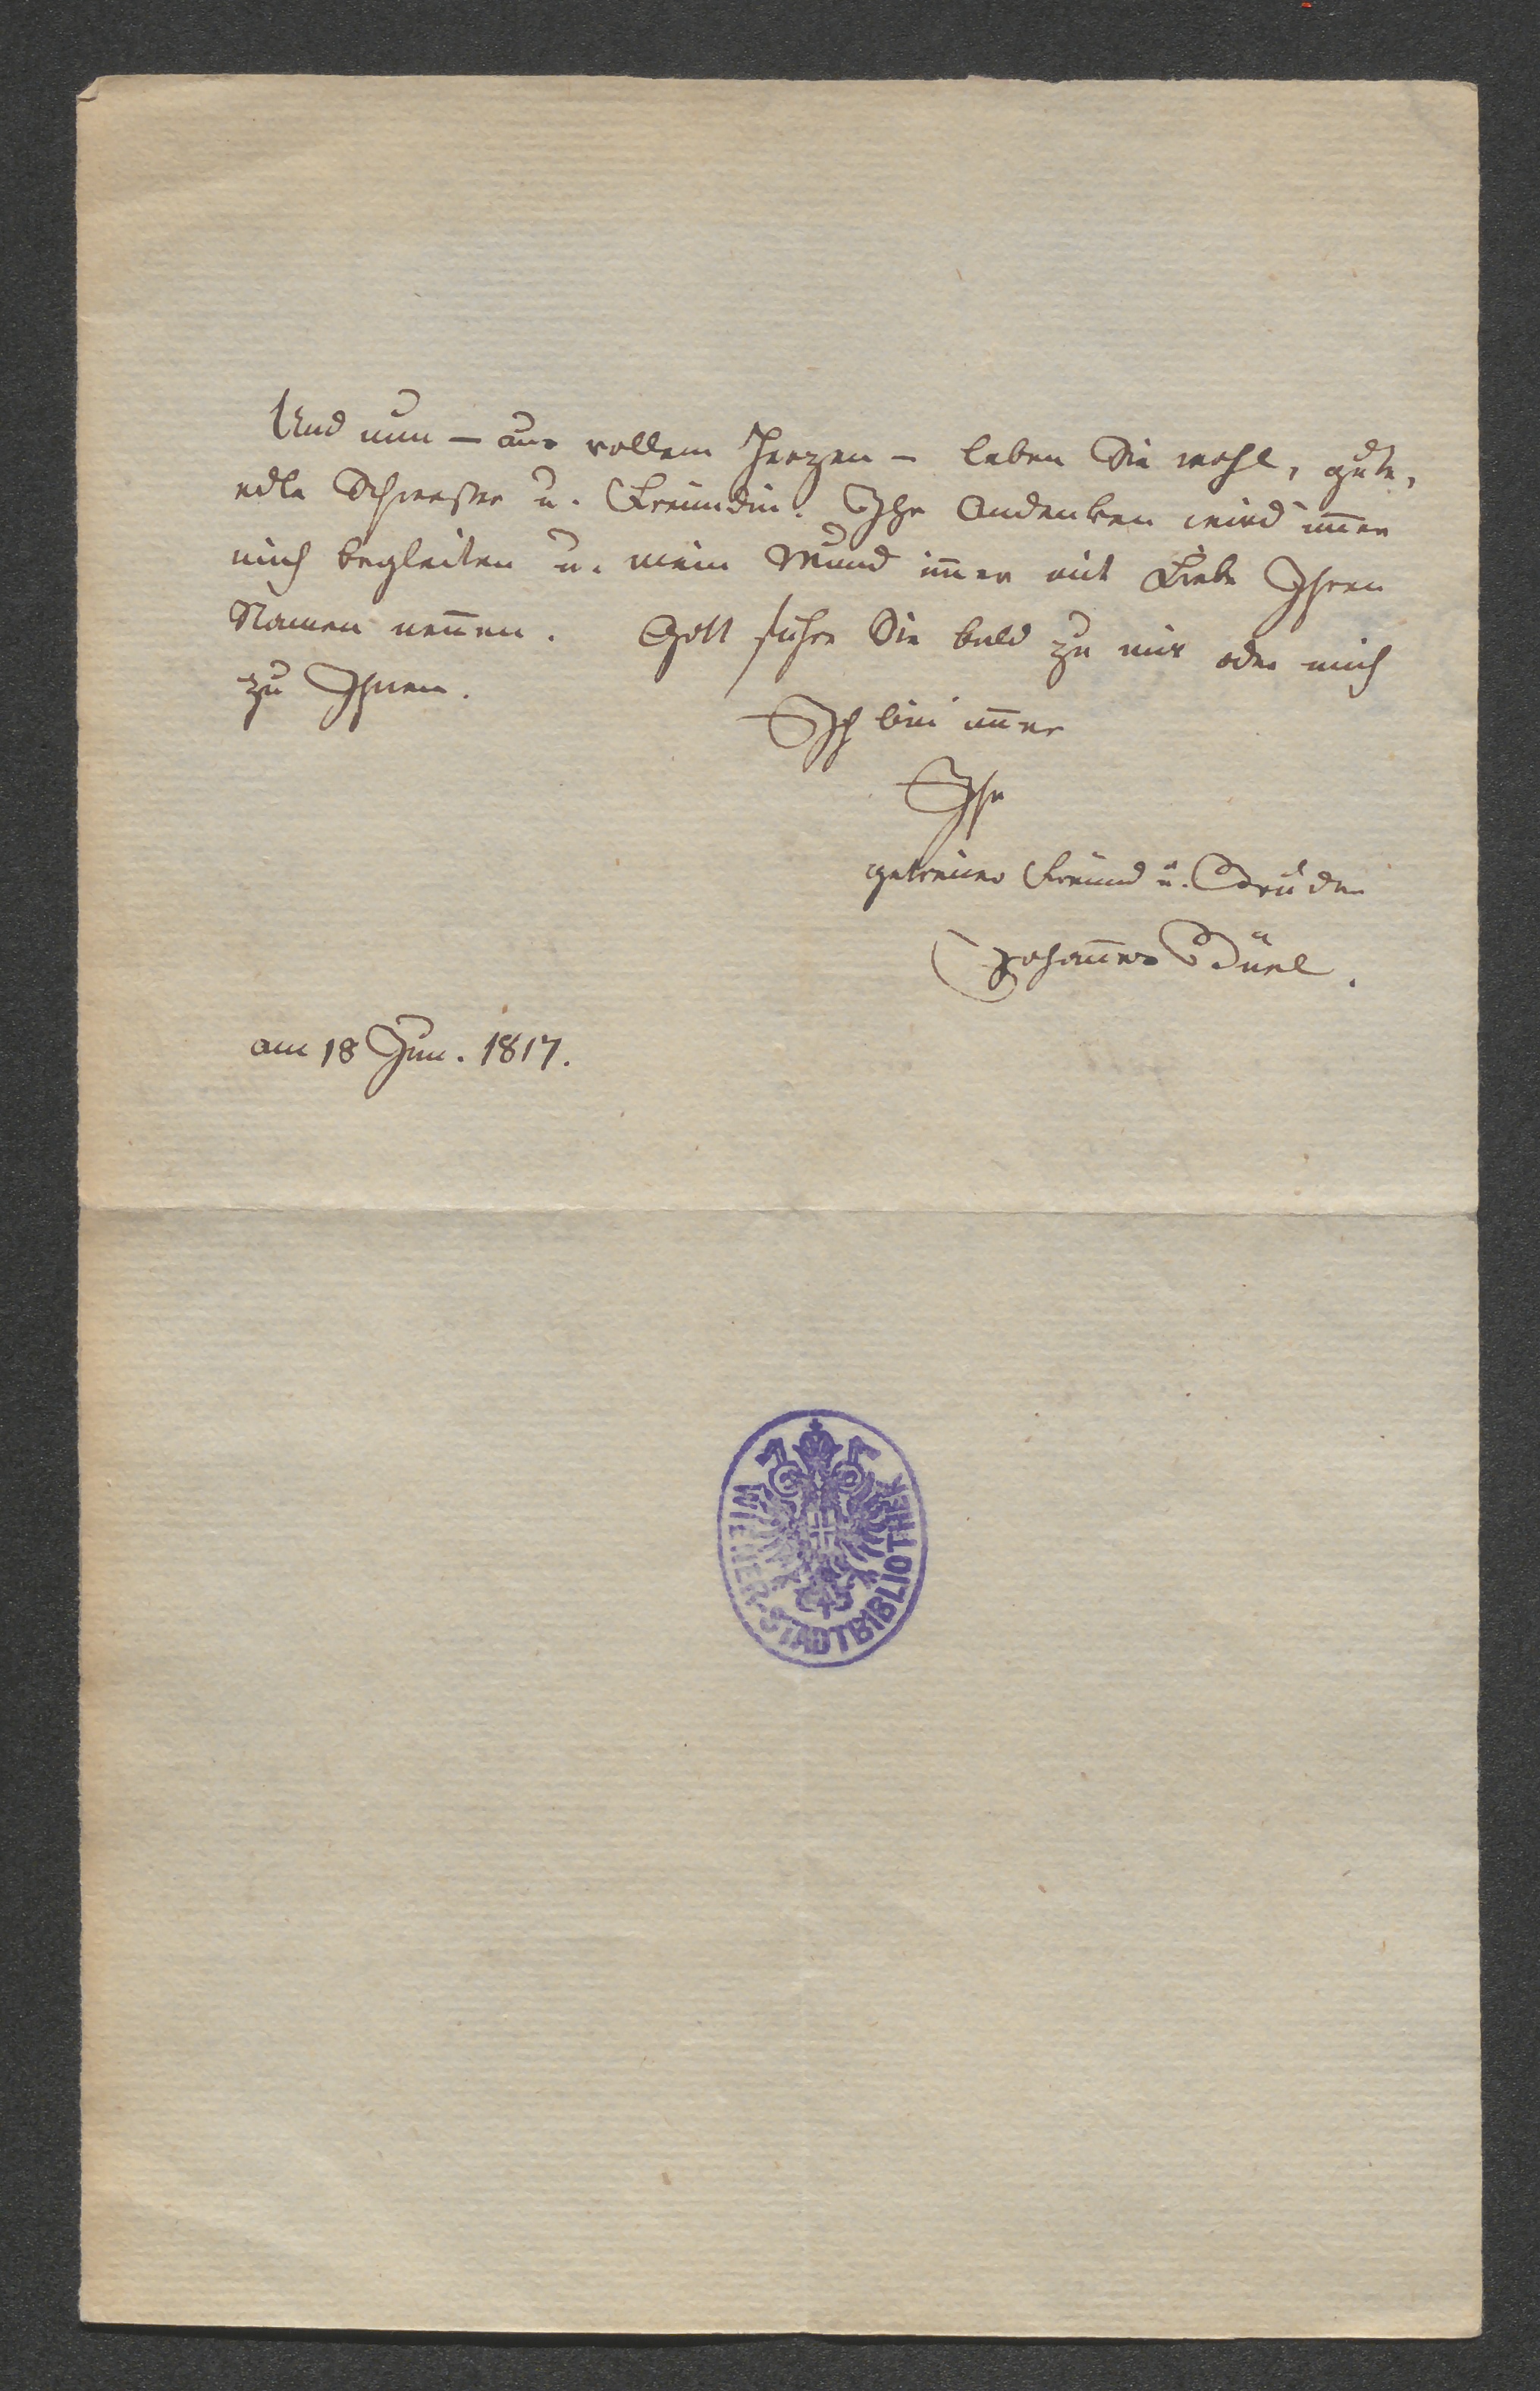 Und nun – aus vollem Herzen – leben Sie wohl, gute,
edle Schwester u. Freundin. Ihr Andenken wird im̅er
mich begleiten u. mein Mund im̅er mit Liebe Ihren
Namen nen̅en. Gott führe Sie bald zu mir oder mich
zu Ihnen.
Ich bin im̅er
Ihr
getreuer Freund u. Bruder
Johan̅es Büel.
am 18 Jun. 1817.
WIENER-STADTBIBLIOTHEK